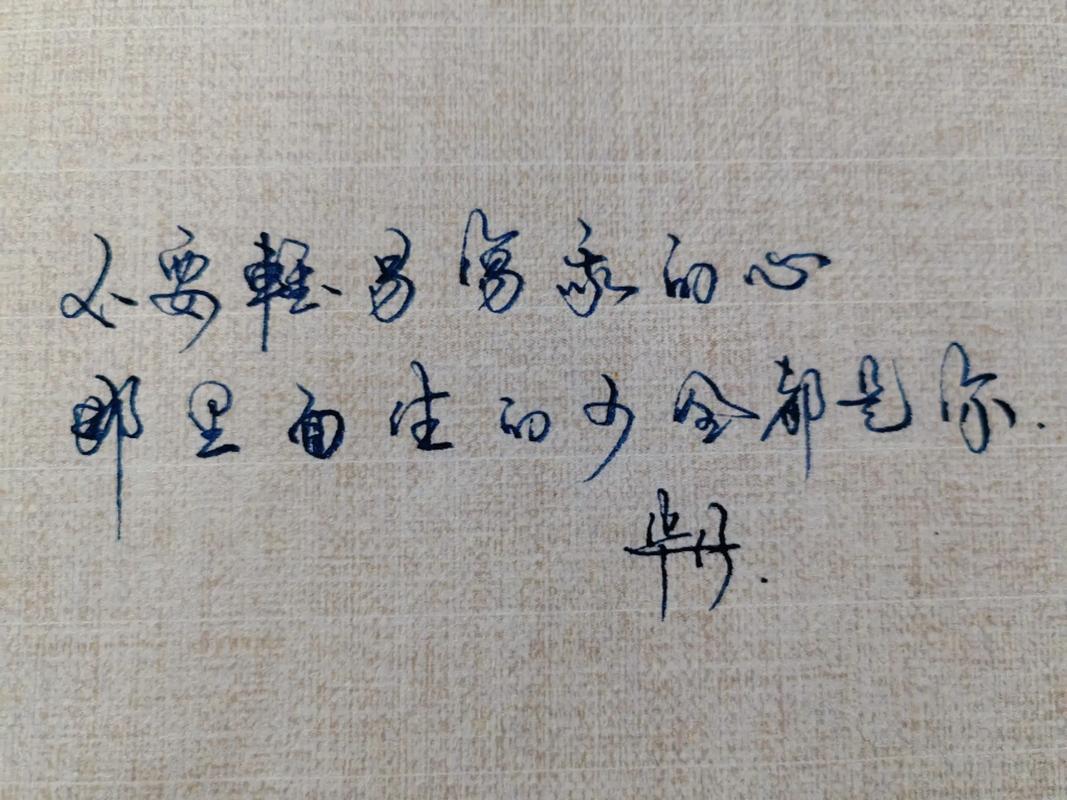 不要輕易傷我的心
那里面生的少全都是你.